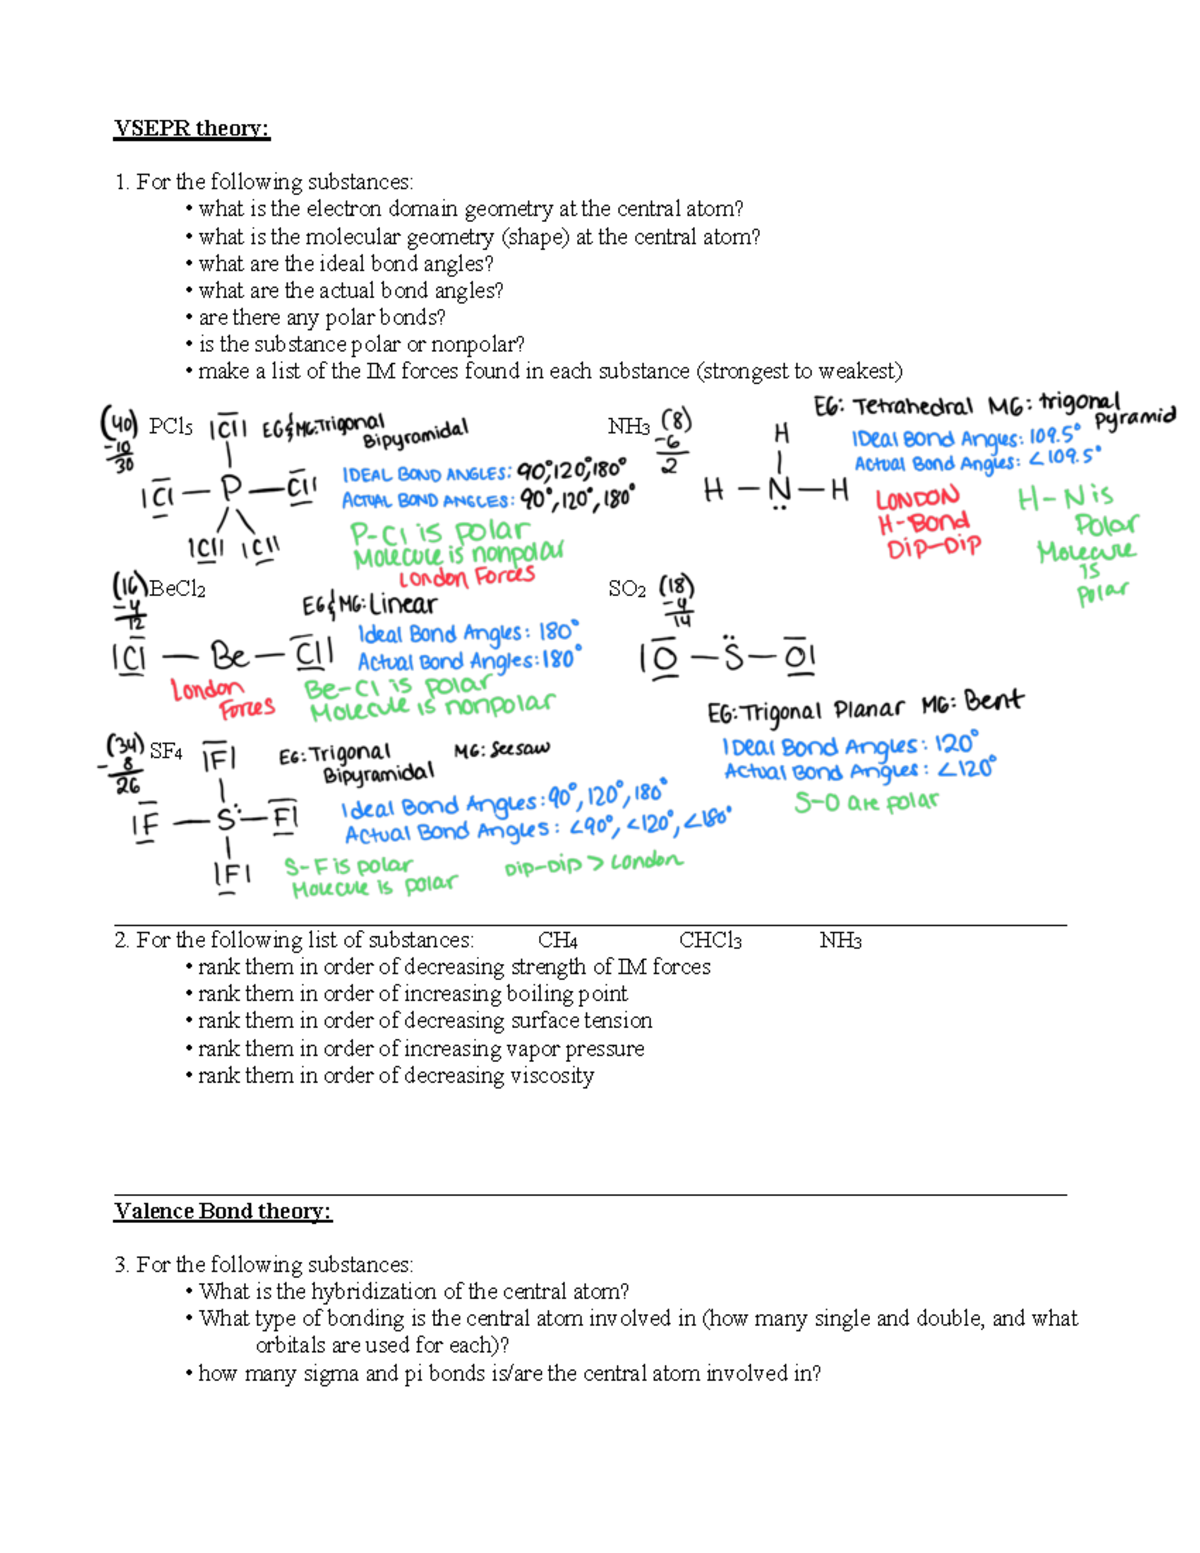 VSEPR theory:
1. For the following substances:
• what is the electron domain geometry at the central atom?
• what is the molecular geometry (shape) at the central atom?
• what are the ideal bond angles?
• what are the actual bond angles?
• are there any polar bonds?
• is the substance polar or nonpolar?
• make a list of the IM forces found in each substance (strongest to weakest)
(40) PCl5
-10
30
|Cl| EG&MG:Trigonal
Bipyramidal
IDEAL BOND ANGLES: 90°,120°,180°
ACTUAL BOND ANGLES: 90°,120°,180°
|Cl — P — Cl|
|Cl| |Cl|
P-Cl is polar
Molecule is nonpolar
London Forces
NH3 (8)
-6
2
EG: Tetrahedral MG: trigonal
pyramid
IDeal BonD Angles: 109.5°
Actual Bond Angles: <109.5°
H
H — N — H
LONDON
H-Bond
Dip-Dip
H-N is
Polar
Molecule
is
Polar
(16) BeCl2
-4
12
EG&MG: Linear
Ideal Bond Angles: 180°
Actual Bond Angles: 180°
|Cl — Be — Cl|
London
Forces
Be-Cl is polar
Molecule is nonpolar
SO2 (18)
-4
14
|O — S — O|
EG: Trigonal Planar MG: Bent
IDeal BonD Angles: 120°
Actual BonD Angles: <120°
S-O are polar
(34) SF4
-8
26
|F|
EG: Trigonal
Bipyramidal
MG: Seesaw
Ideal Bond Angles: 90°, 120°, 180°
Actual Bond Angles: <90°, <120°, <180°
|F — S — F|
|F|
S-F is polar
Molecule is polar
Dip-Dip > London
2. For the following list of substances: CH4 CHCl3 NH3
• rank them in order of decreasing strength of IM forces
• rank them in order of increasing boiling point
• rank them in order of decreasing surface tension
• rank them in order of increasing vapor pressure
• rank them in order of decreasing viscosity
Valence Bond theory:
3. For the following substances:
• What is the hybridization of the central atom?
• What type of bonding is the central atom involved in (how many single and double, and what
orbitals are used for each)?
• how many sigma and pi bonds is/are the central atom involved in?